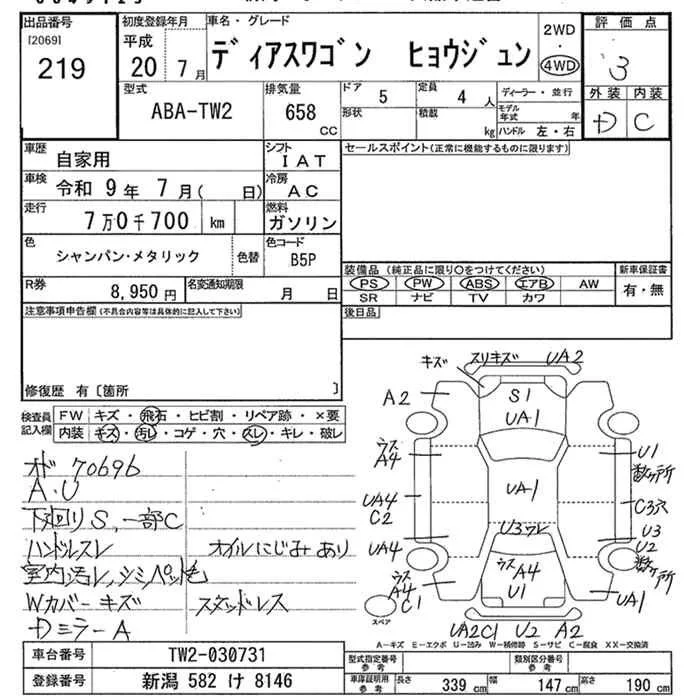 出品番号 初度登録年月 車名・グレード 2WD 評価点
[2069] 平成 ディアスワゴン ヒョウジュン ・ 3
219 20 7月 4WD 外装 内装
型式 排気量 ドア 5 定員 4人 ディーラー・並行 D C
ABA-TW2 658 CC 形状 積載 kg モデル年式 年
ハンドル 左・右
車歴 自家用 シフト IAT セールスポイント(正常に機能するものに限ります)
車検 令和 9年 7月( 日) 冷房 AC
走行 7万0千700 km 燃料 ガソリン
色 シャンパン・メタリック 色替 色コード B5P
R券 8,950円 名変通知期限 月 日
装備品 (純正品に限り○をつけてください) 新車保証書
PS PW ABS エアB AW 有・無
SR ナビ TV カワ
注意事項申告欄(不具合内容等は具体的に記入して下さい) 後日品
修復歴 有〔箇所 〕
検査員記入欄 FW キズ・飛石・ヒビ割・リペア跡・×要
内装 キズ・汚レ・コゲ・穴・スレ・キレ・破レ
オド 70696
A.U
下廻りS、一部C
ハンドルスレ オイルにじみあり
室内汚レ、シミ
Wカバーキズ スタッドレス
Dミラー A
キズ スリキズ UA2
A2 S1
UA1
ウス A4 U1 数ヶ所
UA4 UA1 C3穴
C2
U3ウレ U3
UA4 U2 数ヶ所
ウス A4 ウス A4
C1 U1 UA1
スペア
UA2C1 U2 A2
A-キズ E-エクボ U-凹み W-補修跡 S-サビ C-腐食 XX-交換済
車台番号 TW2-030731 型式指定番号 参考 類別区分番号 参考
登録番号 新潟 582 け 8146 車庫証明用 参考 長さ 339 cm 幅 147 cm 高さ 190 cm